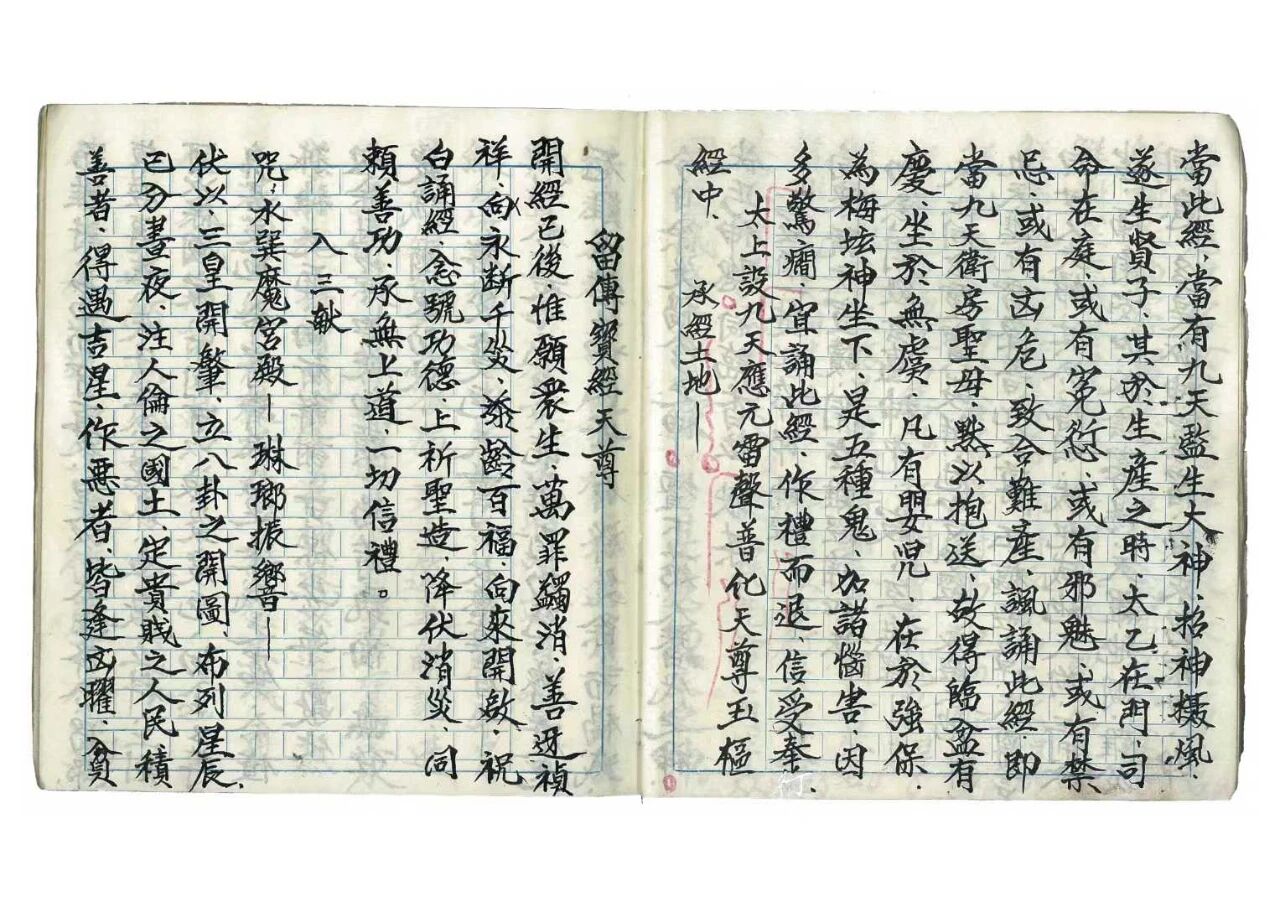 當此經、當有九天監生大神、招神攝風、
遂生賢子、其於生產之時、太乙在門、司
命在庭、或有冤愆、或有邪魅、或有禁
忌、或有凶危、致合難產、諷誦此經、即
當九天衛房聖母、默以抱送、故得臨盆有
慶、坐於無虞、凡有嬰児、在於強保、
為梅坛神坐下、是五種鬼、加諸惱害、因
多驚癇、宜誦此經、作禮而退、信受奉
太上說九天應元雷聲普化天尊玉樞
經中、 承經土地—
留傳寶經天尊
開經已後、惟願衆生、萬罪蠲消、善迓禎
祥、向永断千災、添齡百福、向來開啟、祝
白誦經、念號功德、上祈聖造、降伏消災、同
賴善功、承無上道、一切信禮。
入三献
咒、水巽魔宮殿— 琳瑯振響音—
伏以、三皇開肇、立八卦之開圖、布列星辰、
已分晝夜、注人倫之國土、定貴賎之人民積
善者、得遇吉星、作悪者、皆逢凶曜、